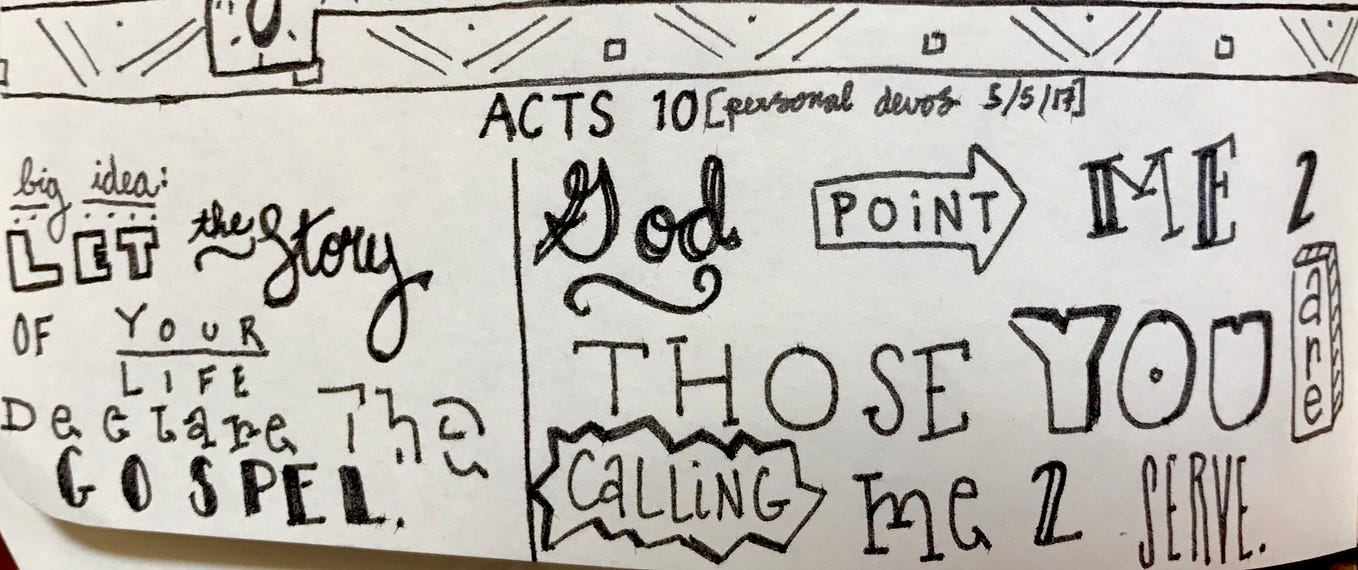 ACTS 10 [personal devos 5/5/17]
big idea:
LET the Story
OF YOUR
LIFE
Declare The
GOSPEL.
God POINT ME 2
THOSE YOU are
CALLiNG me 2 SERVE.